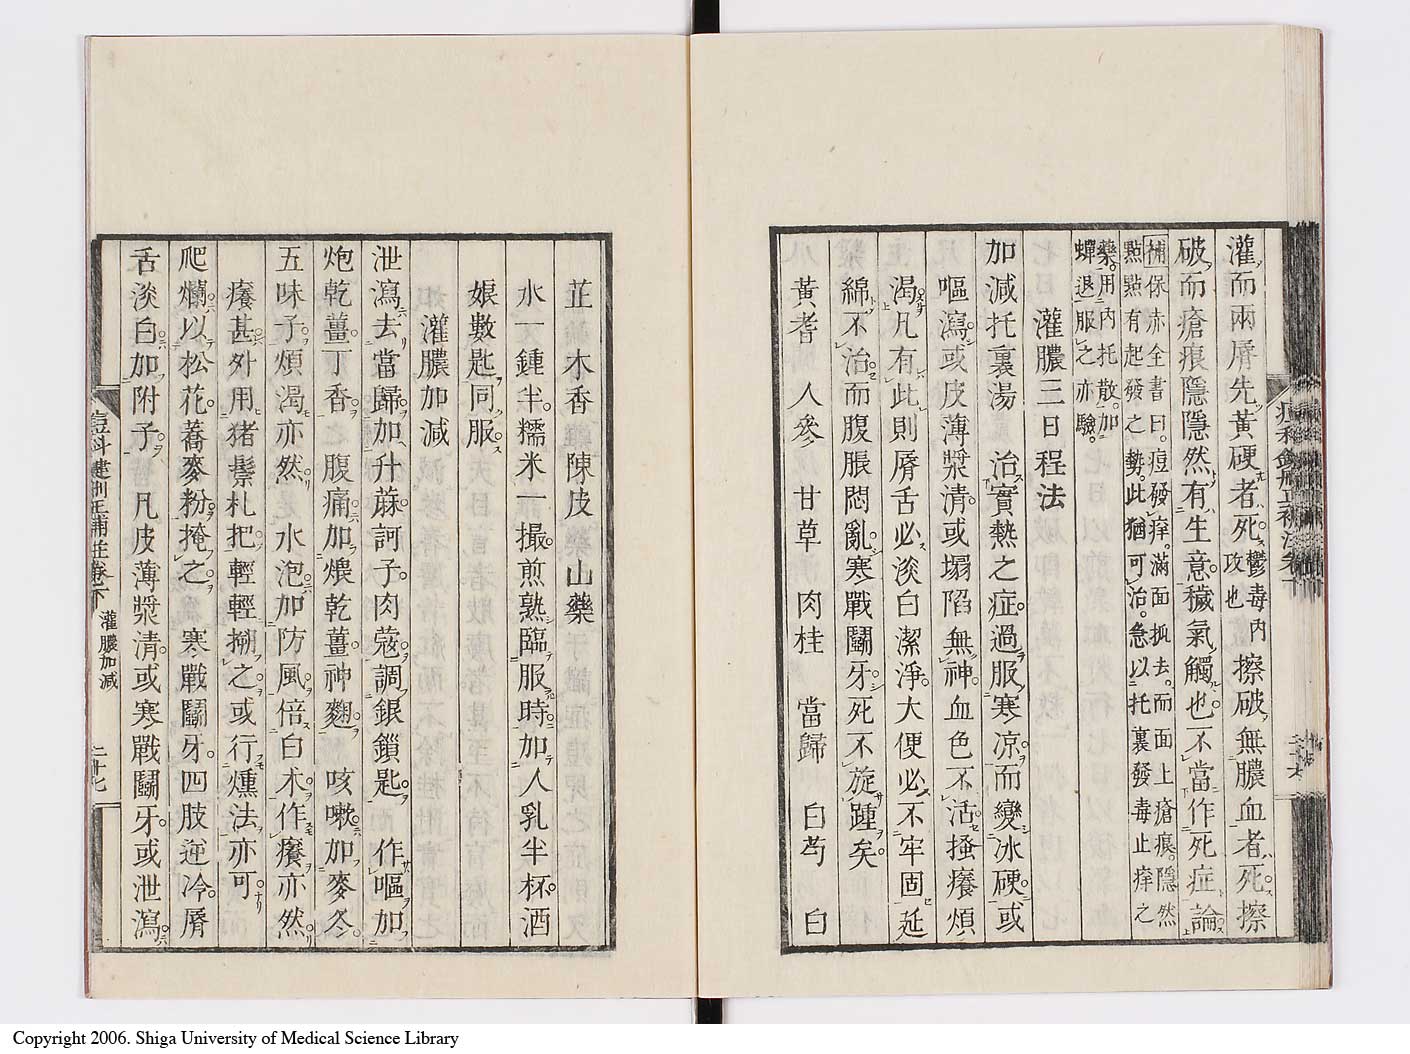 灌而兩脣先黃硬者死鬱毒內攻也擦破無膿血者死擦
破而瘡痕隱隱然有生意穢氣觸也不當作死症論
補保赤全書曰痘發痒滿面抓去而面上瘡痕隱然
點點有起發之勢此猶可治急以托裏發毒止痒之
藥用內托散加
蟬退服之亦驗
灌膿三日程法
加減托裏湯 治實熱之症過服寒凉而變冰硬或
嘔瀉或皮薄漿清或塌陷無神血色不活搔癢煩
渴凡有此則脣舌必淡白潔淨大便必不牢固延
綿不治而腹脹悶亂寒戰鬭牙死不旋踵矣
黃耆 人參 甘草 肉桂 當歸 白芍 白
芷 木香 陳皮 山藥
水一鍾半糯米一撮煎熟臨服時加人乳半杯酒
娘數匙同服
灌膿加減
泄瀉去當歸加升蔴訶子肉蔻調銀鎖匙 作嘔加
炮乾薑丁香之腹痛加煨乾薑神麯 咳嗽加麥冬
五味子煩渴亦然 水泡加防風倍白朮作癢亦然
癢甚外用猪鬃札把輕輕搠之或行燻法亦可
爬爛以松花蕎麥粉掩之 寒戰鬭牙四肢逆冷脣
舌淡白加附子 凡皮薄漿清或寒戰鬭牙或泄瀉
痘科鍵刪正補註卷下 灌膿加減 二十七
Copyright 2006. Shiga University of Medical Science Library